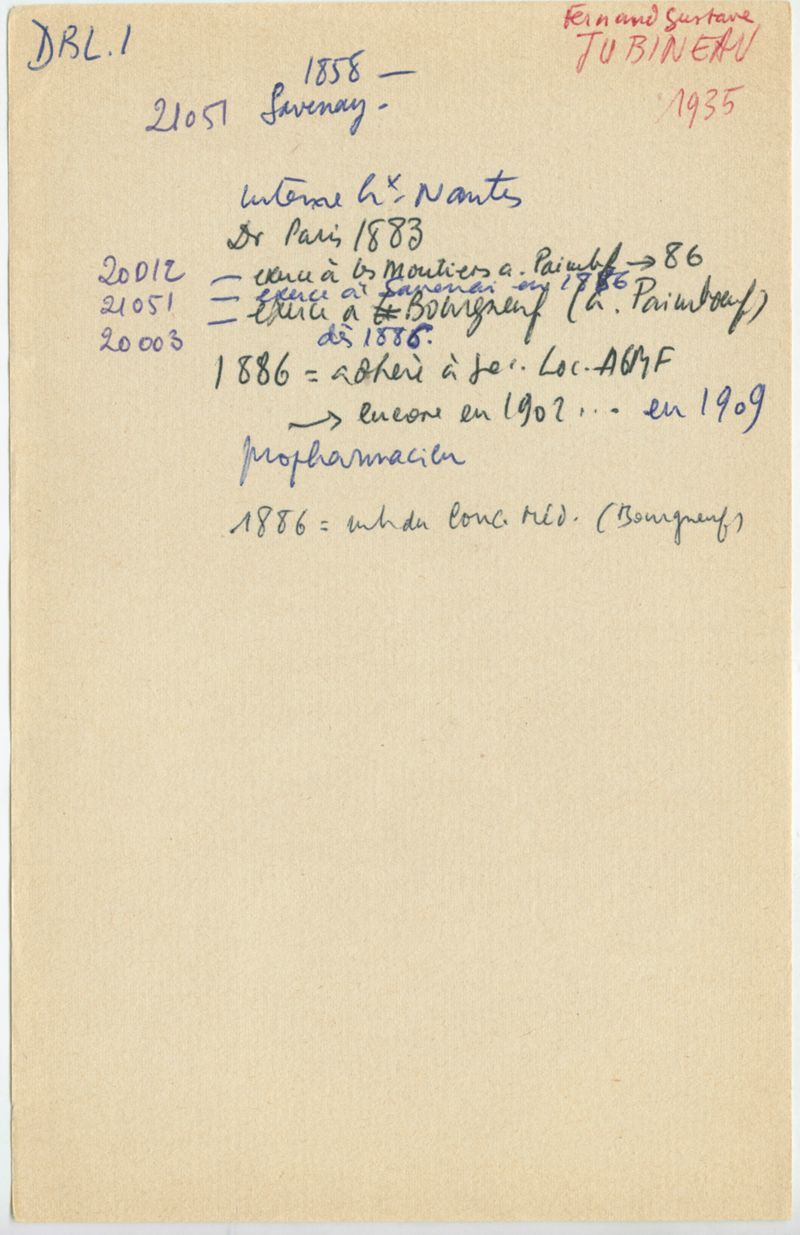 DBL.1
Fernand Gustave
JUBINEAU
1935
1858 —
21051 Savenay.
interne hx. Nantes
Dr Paris 1883
20012 — exerce à les Moutiers a. Paimbf → 86
21051 — exerce à Savenai en 1886
20003 — exerce à Bourgneuf (a. Paimboeuf)
dès 1886.
1886 = adhère à Soc. Loc. AGMF
→ encore en 1902 ... en 1909
propharmacien
1886 = mb du Conc. Méd. (Bourgneuf)